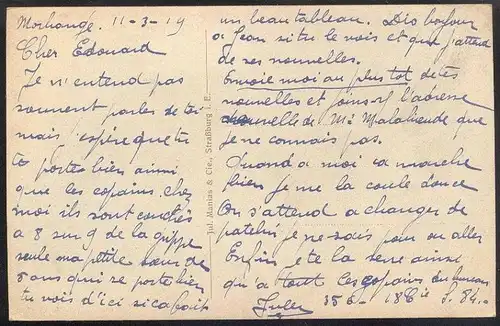 Morhange. 11-3-19
Cher Edouard
Je n'entend pas
souvent parler de toi
mais j'espère que tu
te portes bien ainsi
que les copains. chez
moi ils sont couchés
à 8 sur 9 de la grippe
seule ma petite sœur de
5 ans qui se porte bien
tu vois d'ici si ca fait
Jul. Manias & Cie., Straßburg i. E.
un beau tableau. Dis bonjour
a Jean si tu le vois et que j'attend
de ses nouvelles.
Envoie moi au plus tot de tes
nouvelles et joins-y l'adresse
nouvelle de Mr que
je ne connais pas.
Quand a moi ca marche
bien je me la coule douce
On s'attend a changer de
patelin je ne sais pour ou aller
Enfin je te la serre ainsi
qu'a tout les copains du bureau
Jules 356- 18e Cie S.P. 84.